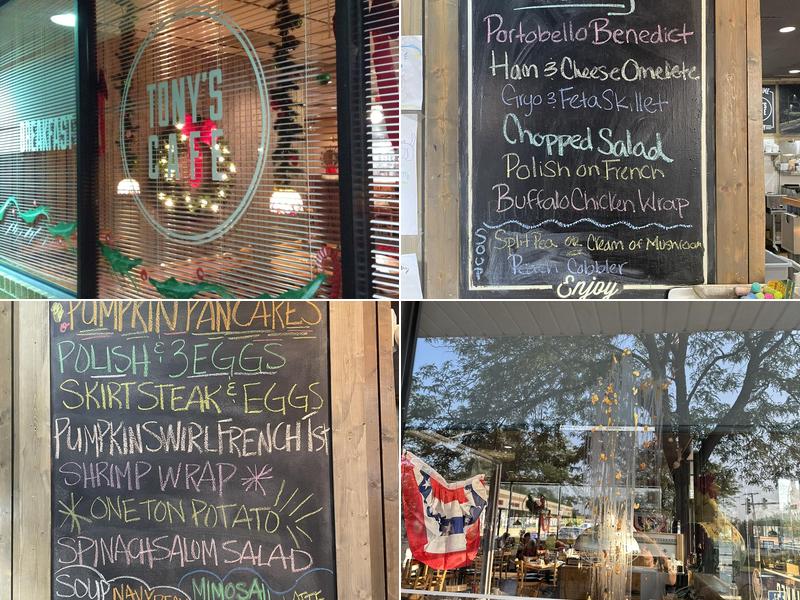 BREAKFAST
TONY'S
CAFE
Portobello Benedict
Ham & Cheese Omelete
Gryo & Feta Skillet
Chopped Salad
Polish on French
Buffalo Chicken Wrap
SOUP
Split Pea or Cream of Mushroom
Peach Cobbler
Enjoy
PUMPKIN PANCAKES
POLISH & 3 EGGS
SKIRT STEAK & EGGS
PUMPKIN SWIRL FRENCH Tst
SHRIMP WRAP
ONE TON POTATO
SPINACH SALOM SALAD
SOUP
NAVY BEAN
MIMOSA